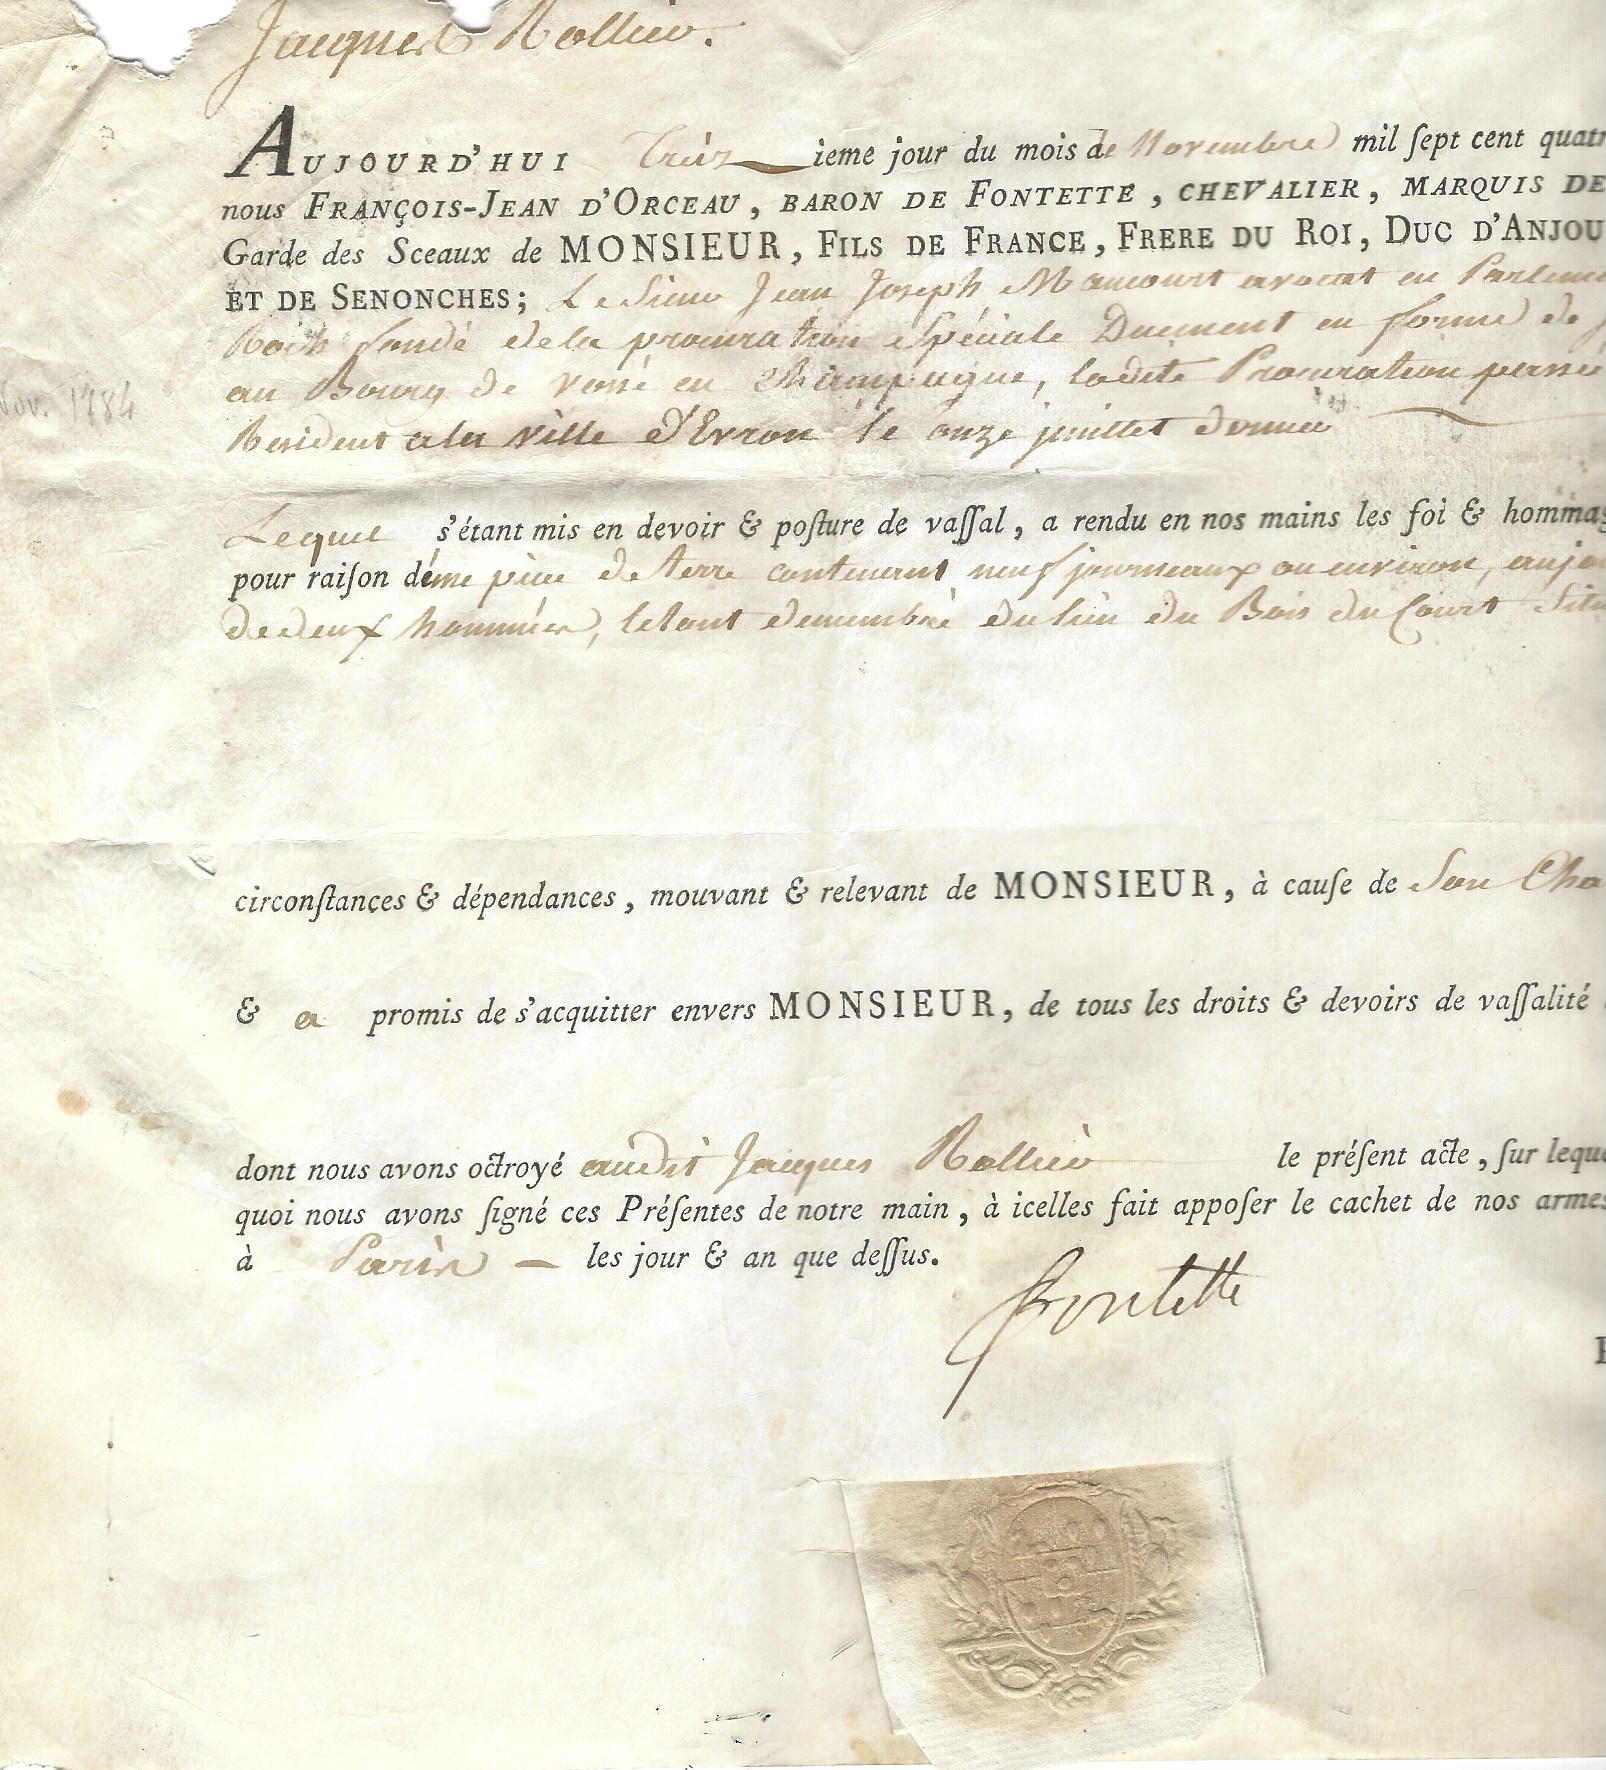 Jacques Rollier.
AUJOURD'HUI Treiz ieme jour du mois de Novembre mil ſept cent quatr
nous FRANÇOIS-JEAN D'ORCEAU, BARON DE FONTETTE, CHEVALIER, MARQUIS DE
Garde des Sceaux de MONSIEUR, FILS DE FRANCE, FRERE DU ROI, DUC D'ANJOU
ET DE SENONCHES; Le Sieur Jean Joseph Maucourt avocat en Parleme
fondé de la procuration Spéciale Duement en forme de
au Bourg de Voré en Champagne, ladite Procuration passée
Resident a la ville d'Evron le onze juillet dernier
Nov. 1784
Lequel s'étant mis en devoir & poſture de vaſſal, a rendu en nos mains les foi & hommag
pour raiſon d'une piece de terre contenant neuf journeaux ou environ, anjo
de deux hommées, le tout demembré du lieu du Bois du Court Situ
circonſtances & dépendances, mouvant & relevant de MONSIEUR, à cauſe de Son Cha
& a promis de s'acquitter envers MONSIEUR, de tous les droits & devoirs de vaſſalité
dont nous avons octroyé audit Jacques Rollier le préſent acte, ſur leque
quoi nous avons ſigné ces Préſentes de notre main, à icelles fait appoſer le cachet de nos armes
à Paris — les jour & an que deſſus.
Fontette